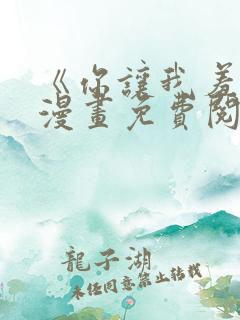 《你讓我羞
漫畫免費閱
龍子湖
未經同意禁止轉載